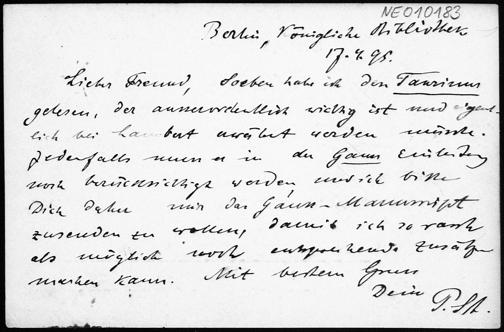 NE010183
Berlin, Königliche Bibliothek
17.4.95.
Lieber Freund, Soeben habe ich den Taurinus
gelesen, der ausserordentlich wichtig ist und eigent-
lich bei Lambert erwähnt werden müsste.
Jedenfalls muss er in der Gauss Einleitung
noch berücksichtigt werden und ich bitte
Dich daher mir das Gauss-Manuscript
zusenden zu wollen, damit ich so rasch
als möglich noch entsprechende Zusätze
machen kann. Mit bestem Gruss
Dein
P. St.